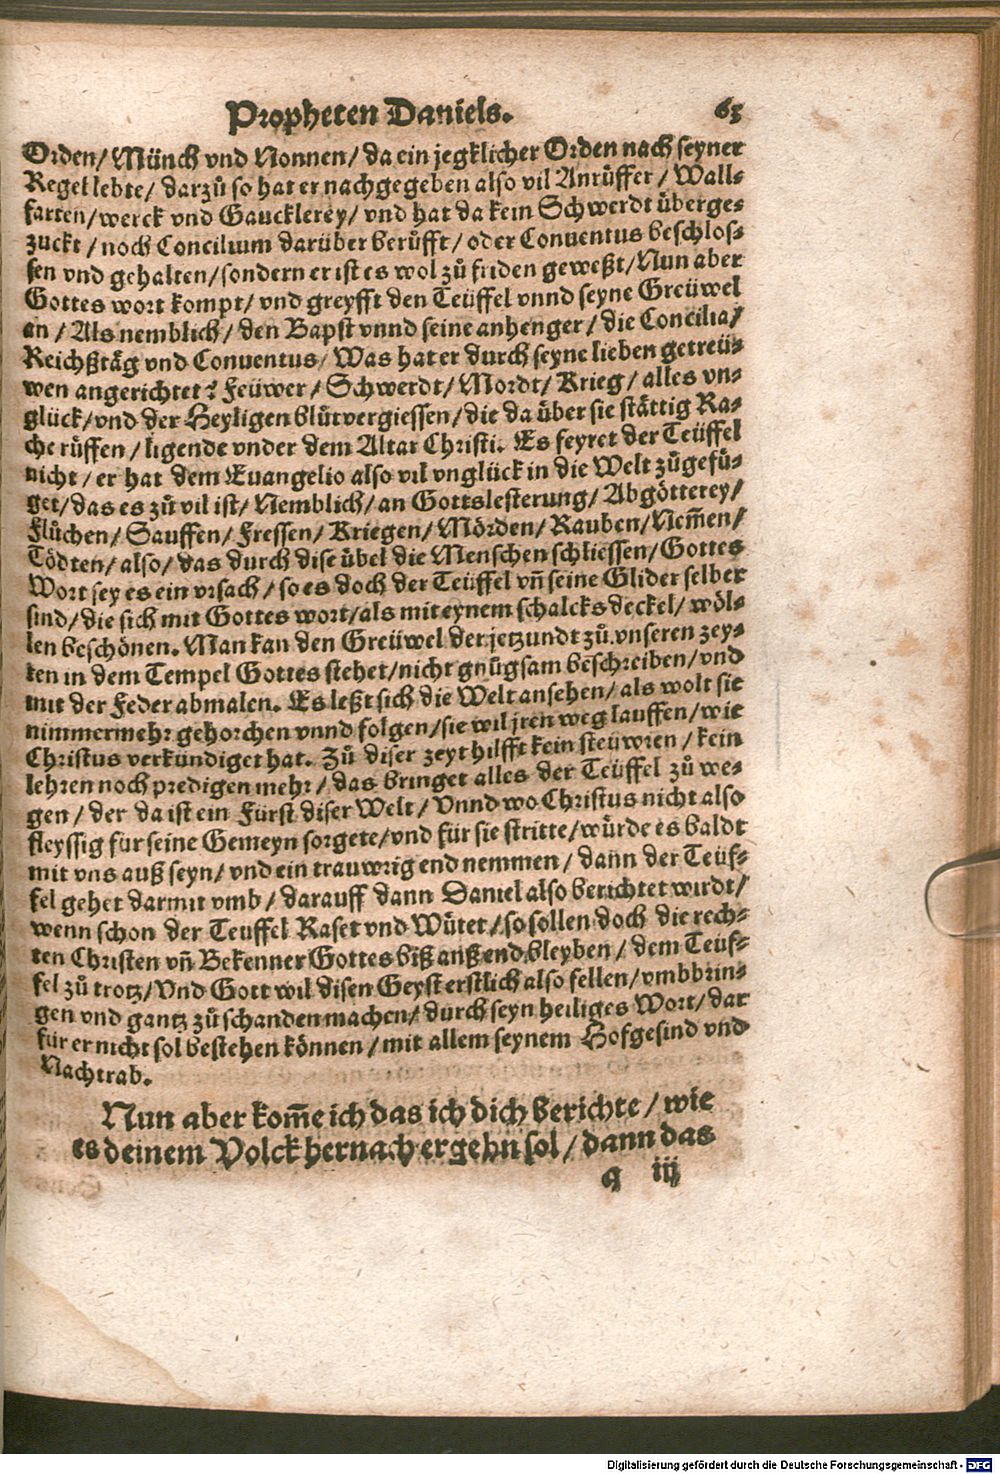 Propheten Daniels. 63
Orden/ Münch vnd Nonnen/ da ein jegklicher Orden nach seyner
Regel lebte/ darzů so hat er nachgegeben also vil Anrüffer/ Wall⸗
farten/ werck vnd Gaucklerey/ vnd hat da kein Schwerdt überge⸗
zuckt/ noch Concilium darüber berüfft/ oder Conuentus beschlos⸗
sen vnd gehalten/ sondern er ist es wol zů friden geweßt/ Nun aber
Gottes wort kompt/ vnd greyfft den Teüffel vnnd seyne Greüwel
an/ Als nemblich/ den Bapst vnnd seine anhenger/ die Concilia/
Reichßtäg vnd Conuentus/ Was hat er durch seyne lieben getreü⸗
wen angerichtet? Feüwer/ Schwerdt/ Mordt/ Krieg/ alles vn⸗
glück/ vnd der Heyligen blůtvergiessen/ die da über sie stättig Ra⸗
che rüffen/ ligende vnder dem Altar Christi. Es feyret der Teüffel
nicht/ er hat dem Euangelio also vil vnglück in die Welt zůgefü⸗
get/ das es zů vil ist/ Nemblich/ an Gottslesterung/ Abgötterey/
Flůchen/ Sauffen/ Fressen/ Kriegen/ Mörden/ Rauben/ Nem̃en/
Tödten/ also/ das durch dise übel die Menschen schliessen/ Gottes
Wort sey es ein vrsach/ so es doch der Teüffel vñ seine Glider selber
sind/ die sich mit Gottes wort/ als mit eynem schalcks deckel/ wöl⸗
len beschönen. Man kan den Greüwel der jetzundt zů vnseren zey⸗
ten in dem Tempel Gottes stehet/ nicht gnůgsam beschreiben/ vnd
mit der Feder abmalen. Es leßt sich die Welt ansehen/ als wolt sie
nimmermehr gehorchen vnnd folgen/ sie wil jren weg lauffen/ wie
Christus verkündiget hat. Zů diser zeyt hilfft kein steüwren/ kein
lehren noch predigen mehr/ das bringet alles der Teüffel zů we⸗
gen/ der da ist ein Fürst diser Welt/ Vnnd wo Christus nicht also
fleyssig für seine Gemeyn sorgete/ vnd für sie stritte/ würde es baldt
mit vns auß seyn/ vnd ein trauwrig end nemmen/ dann der Teüf⸗
fel gehet darmit vmb/ darauff dann Daniel also berichtet wirdt/
wenn schon der Teuffel Raset vnd Wütet/ so sollen doch die rech⸗
ten Christen vñ Bekenner Gottes biß anß end bleyben/ dem Teüf⸗
fel zů trotz/ Vnd Gott wil disen Geyst erstlich also fellen/ vmbbrin⸗
gen vnd gantz zů schanden machen/ durch seyn heiliges Wort/ dar
für er nicht sol bestehen können/ mit allem seynem Hofgesind vnd
Nachtrab.
Nun aber kom̃e ich das ich dich berichte/ wie
es deinem Volck hernach ergehn sol/ dann das
q iij
Digitalisierung gefördert durch die Deutsche Forschungsgemeinschaft - DFG